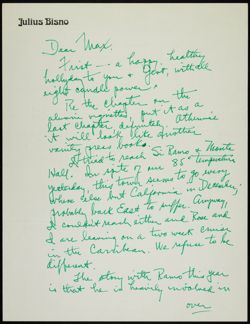 Julius Bisno
Dear Max,
First — a happy, healthy
holliday to you & Govt, with all
eight candle power!
Re the chapter on the
alumni vignettes put it as a
last chapter, definitely. Otherwise
it will look like another
vanity press book.
I tried to reach Si Ramo & Monte
Hall. In spite of our 85° temperature
yesterday, this town seems to go every
where else but California in December,
probably back East to suffer. Anyway,
I couldn't reach either and Rose and
I are leaving on a two week cruise
in the Caribbean. We refuse to be
different.
The story with Ramo this year
is that he is heavily involved in
over